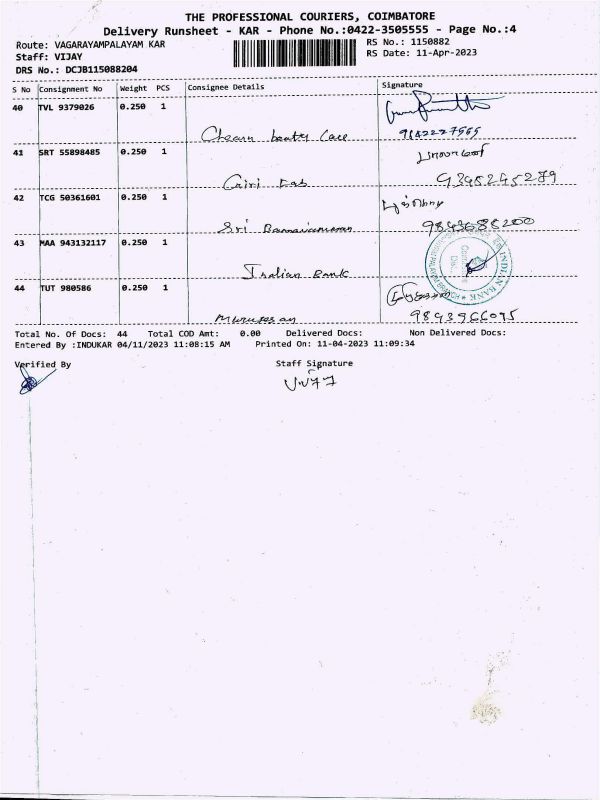 THE PROFESSIONAL COURIERS, COIMBATORE
Delivery Runsheet - KAR - Phone No.:0422-3505555 - Page No.:4
Route: VAGARAYAMPALAYAM KAR
RS No.: 1150882
Staff: VIJAY
RS Date: 11-Apr-2023
DRS No.: DCJB115088204
S No Consignment No Weight PCS Consignee Details Signature
40 TVL 9379026 0.250 1
Care
41 SRT 55898485 0.250 1
Giri
9345245279
42 TCG 50361601 0.250 1
Sri
43 MAA 943132117 0.250 1
Indian Bank
INDIAN BANK
44 TUT 980586 0.250 1
Murugesan
9893966095
Total No. Of Docs: 44 Total COD Amt: 0.00 Delivered Docs: Non Delivered Docs:
Entered By :INDUKAR 04/11/2023 11:08:15 AM Printed On: 11-04-2023 11:09:34
Verified By Staff Signature